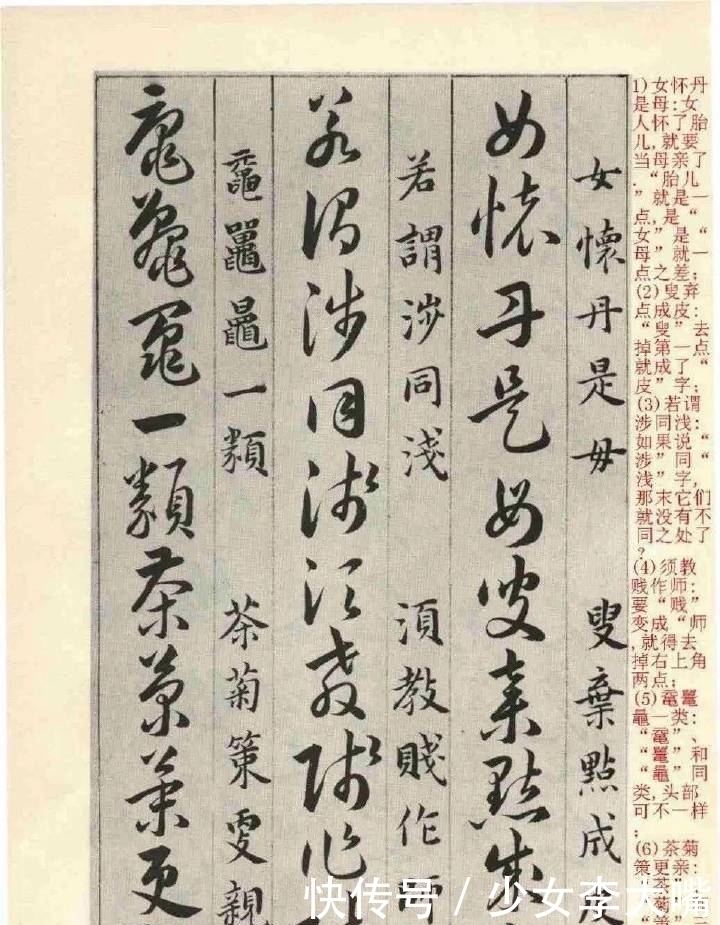 女懷丹是毋 叟棄點成皮
女懷丹是母叟棄點成
若謂涉同淺 須教賤作師
若謂涉同淺須教賤作
鼋鼍黽一類 茶菊策更親
一類茶菊策更
1)女怀丹
是母:女
人怀了胎
儿,就要
当母亲了
.“胎儿
”就是一
点,是“
女”是“
母”就一
点之差;
(2)叟弃
点成皮:
“叟”去
掉第一点
就成了“
皮”字;
(3)若谓
涉同浅:
如果说“
涉”同“
浅”字,
那末它们
就没有不
同之处了
?
(4)须教
贱作师:
要“贱”
变成“师
,就得去
掉右上角
两点;
(5)鼋鼍
黾一类:
“鼋”、
“鼍”和
“黾”同
类,头部
可不一样
;
(6)茶菊
策更亲:
快传号 / 少女李大嘴